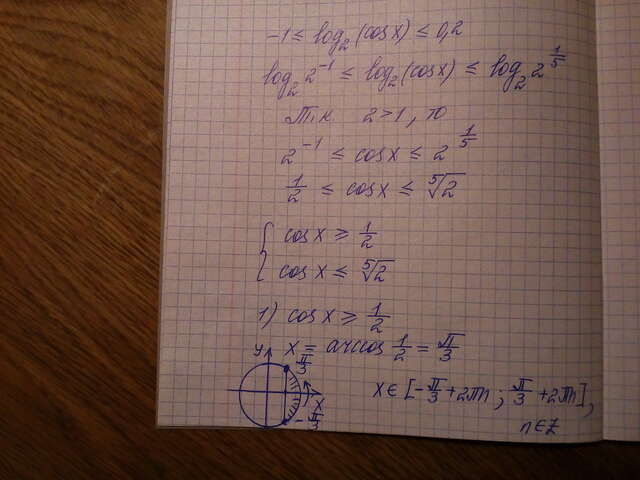 -1 ≤ log₂(cos x) ≤ 0,2
log₂ 2⁻¹ ≤ log₂(cos x) ≤ log₂ 2^(1/5)
Т.к. 2>1, то
2⁻¹ ≤ cos x ≤ 2^(1/5)
1/2 ≤ cos x ≤ ⁵√2
{ cos x ≥ 1/2
cos x ≤ ⁵√2
1) cos x ≥ 1/2
x = arccos 1/2 = π/3
y
π/3
x
-π/3
x ∈ [-π/3 + 2πn ; π/3 + 2πn],
n ∈ Z